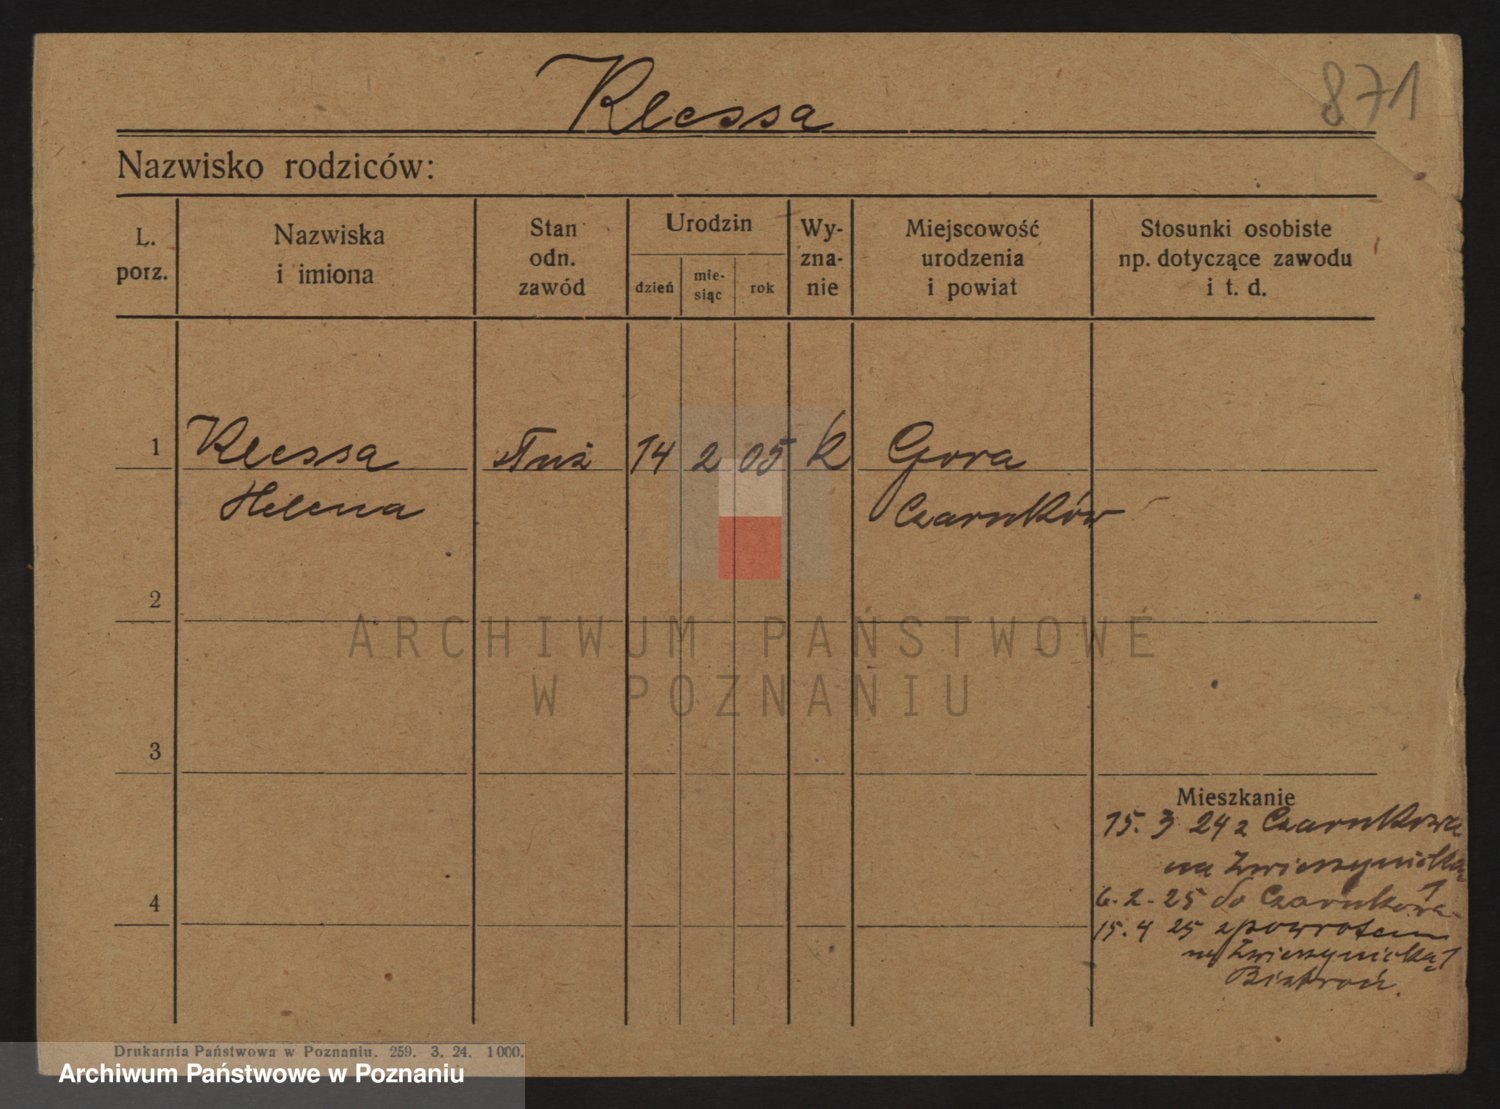 Klessa
871
Nazwisko rodziców:
L. porz.
Nazwiska i imiona
Stan odn. zawód
Urodzin
dzień
mie-siąc
rok
Wy-zna-nie
Miejscowość urodzenia i powiat
Stosunki osobiste np. dotyczące zawodu i t. d.
1 Klessa służ 14 2 05 k Gora
Helena Czarnków
2
ARCHIWUM PAŃSTWOWE
W POZNANIU
3
Mieszkanie
15. 3 24 z Czarnkowa
na Zwierzyniecką
4
6. 2. 25 do Czarnkowa
15. 4 25 zpowrotem
na Zwierzyniecką 1
Drukarnia Państwowa w Poznaniu. 259. 3. 24. 1000.
Archiwum Państwowe w Poznaniu